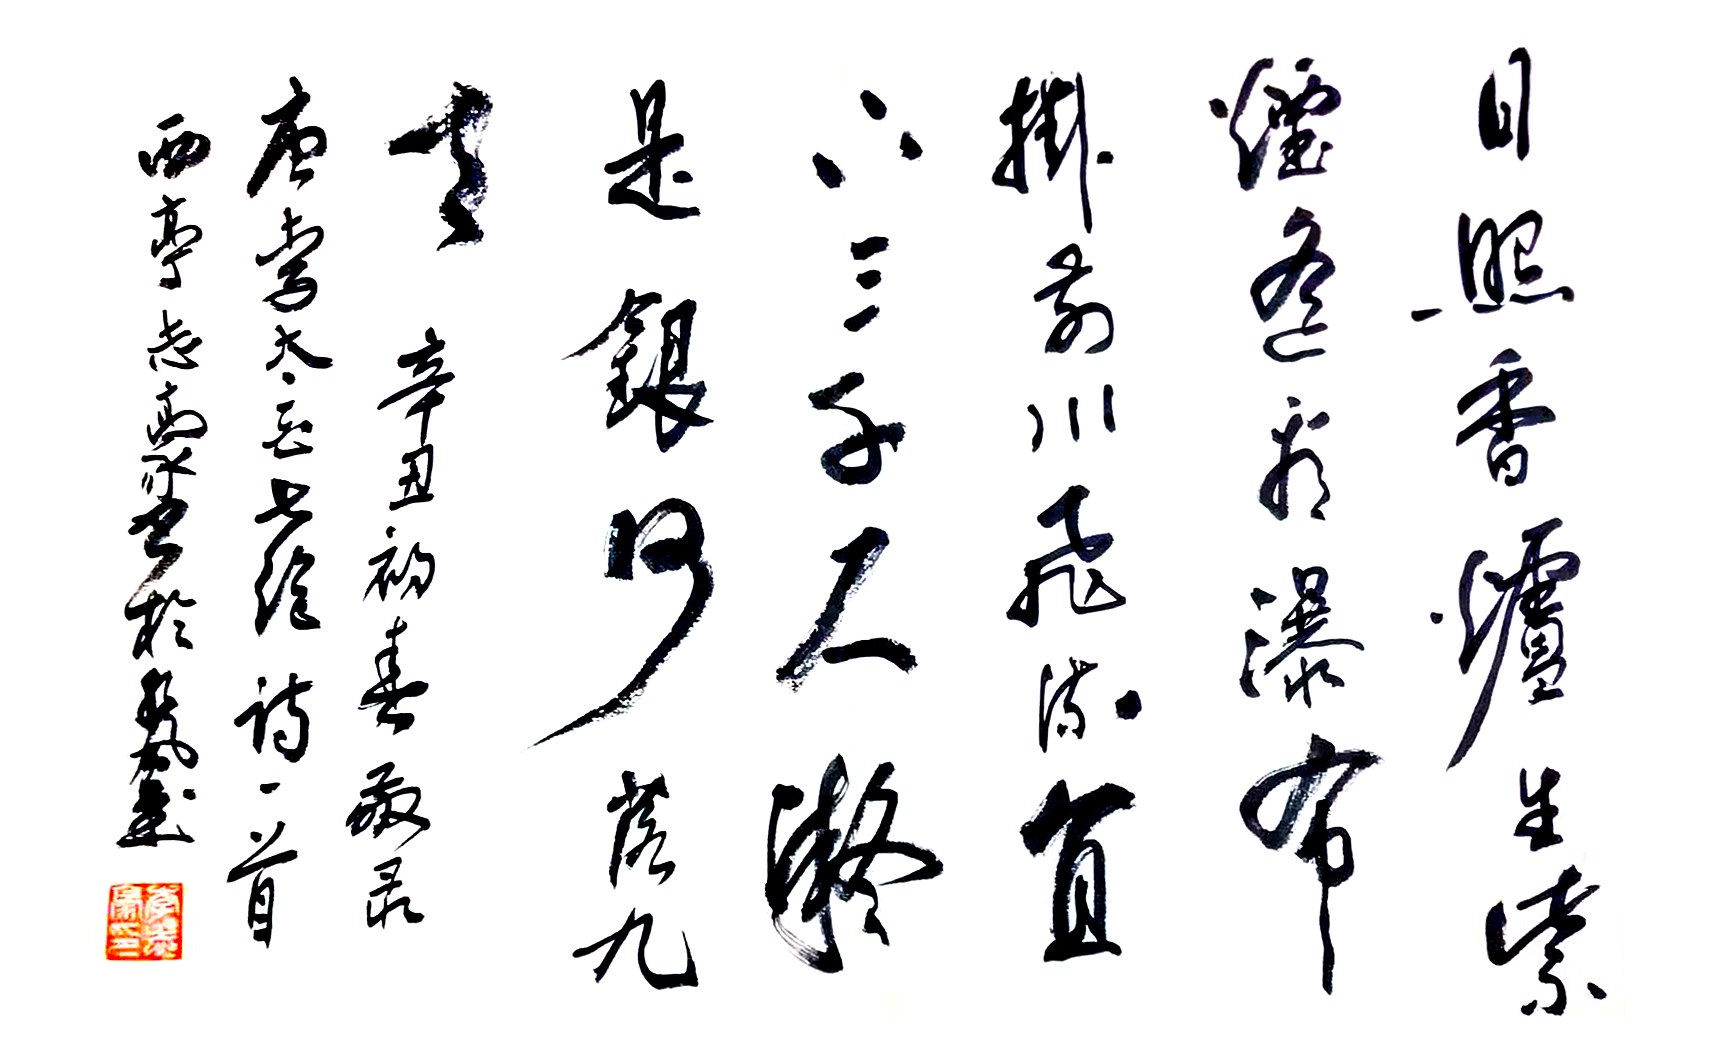 日照香爐生紫
煙遙看瀑布
掛前川飛流直
下三千尺疑
是銀河落九
天 辛丑初春敬录
唐李太白七绝诗一首
西亭志豪书於
李志豪印